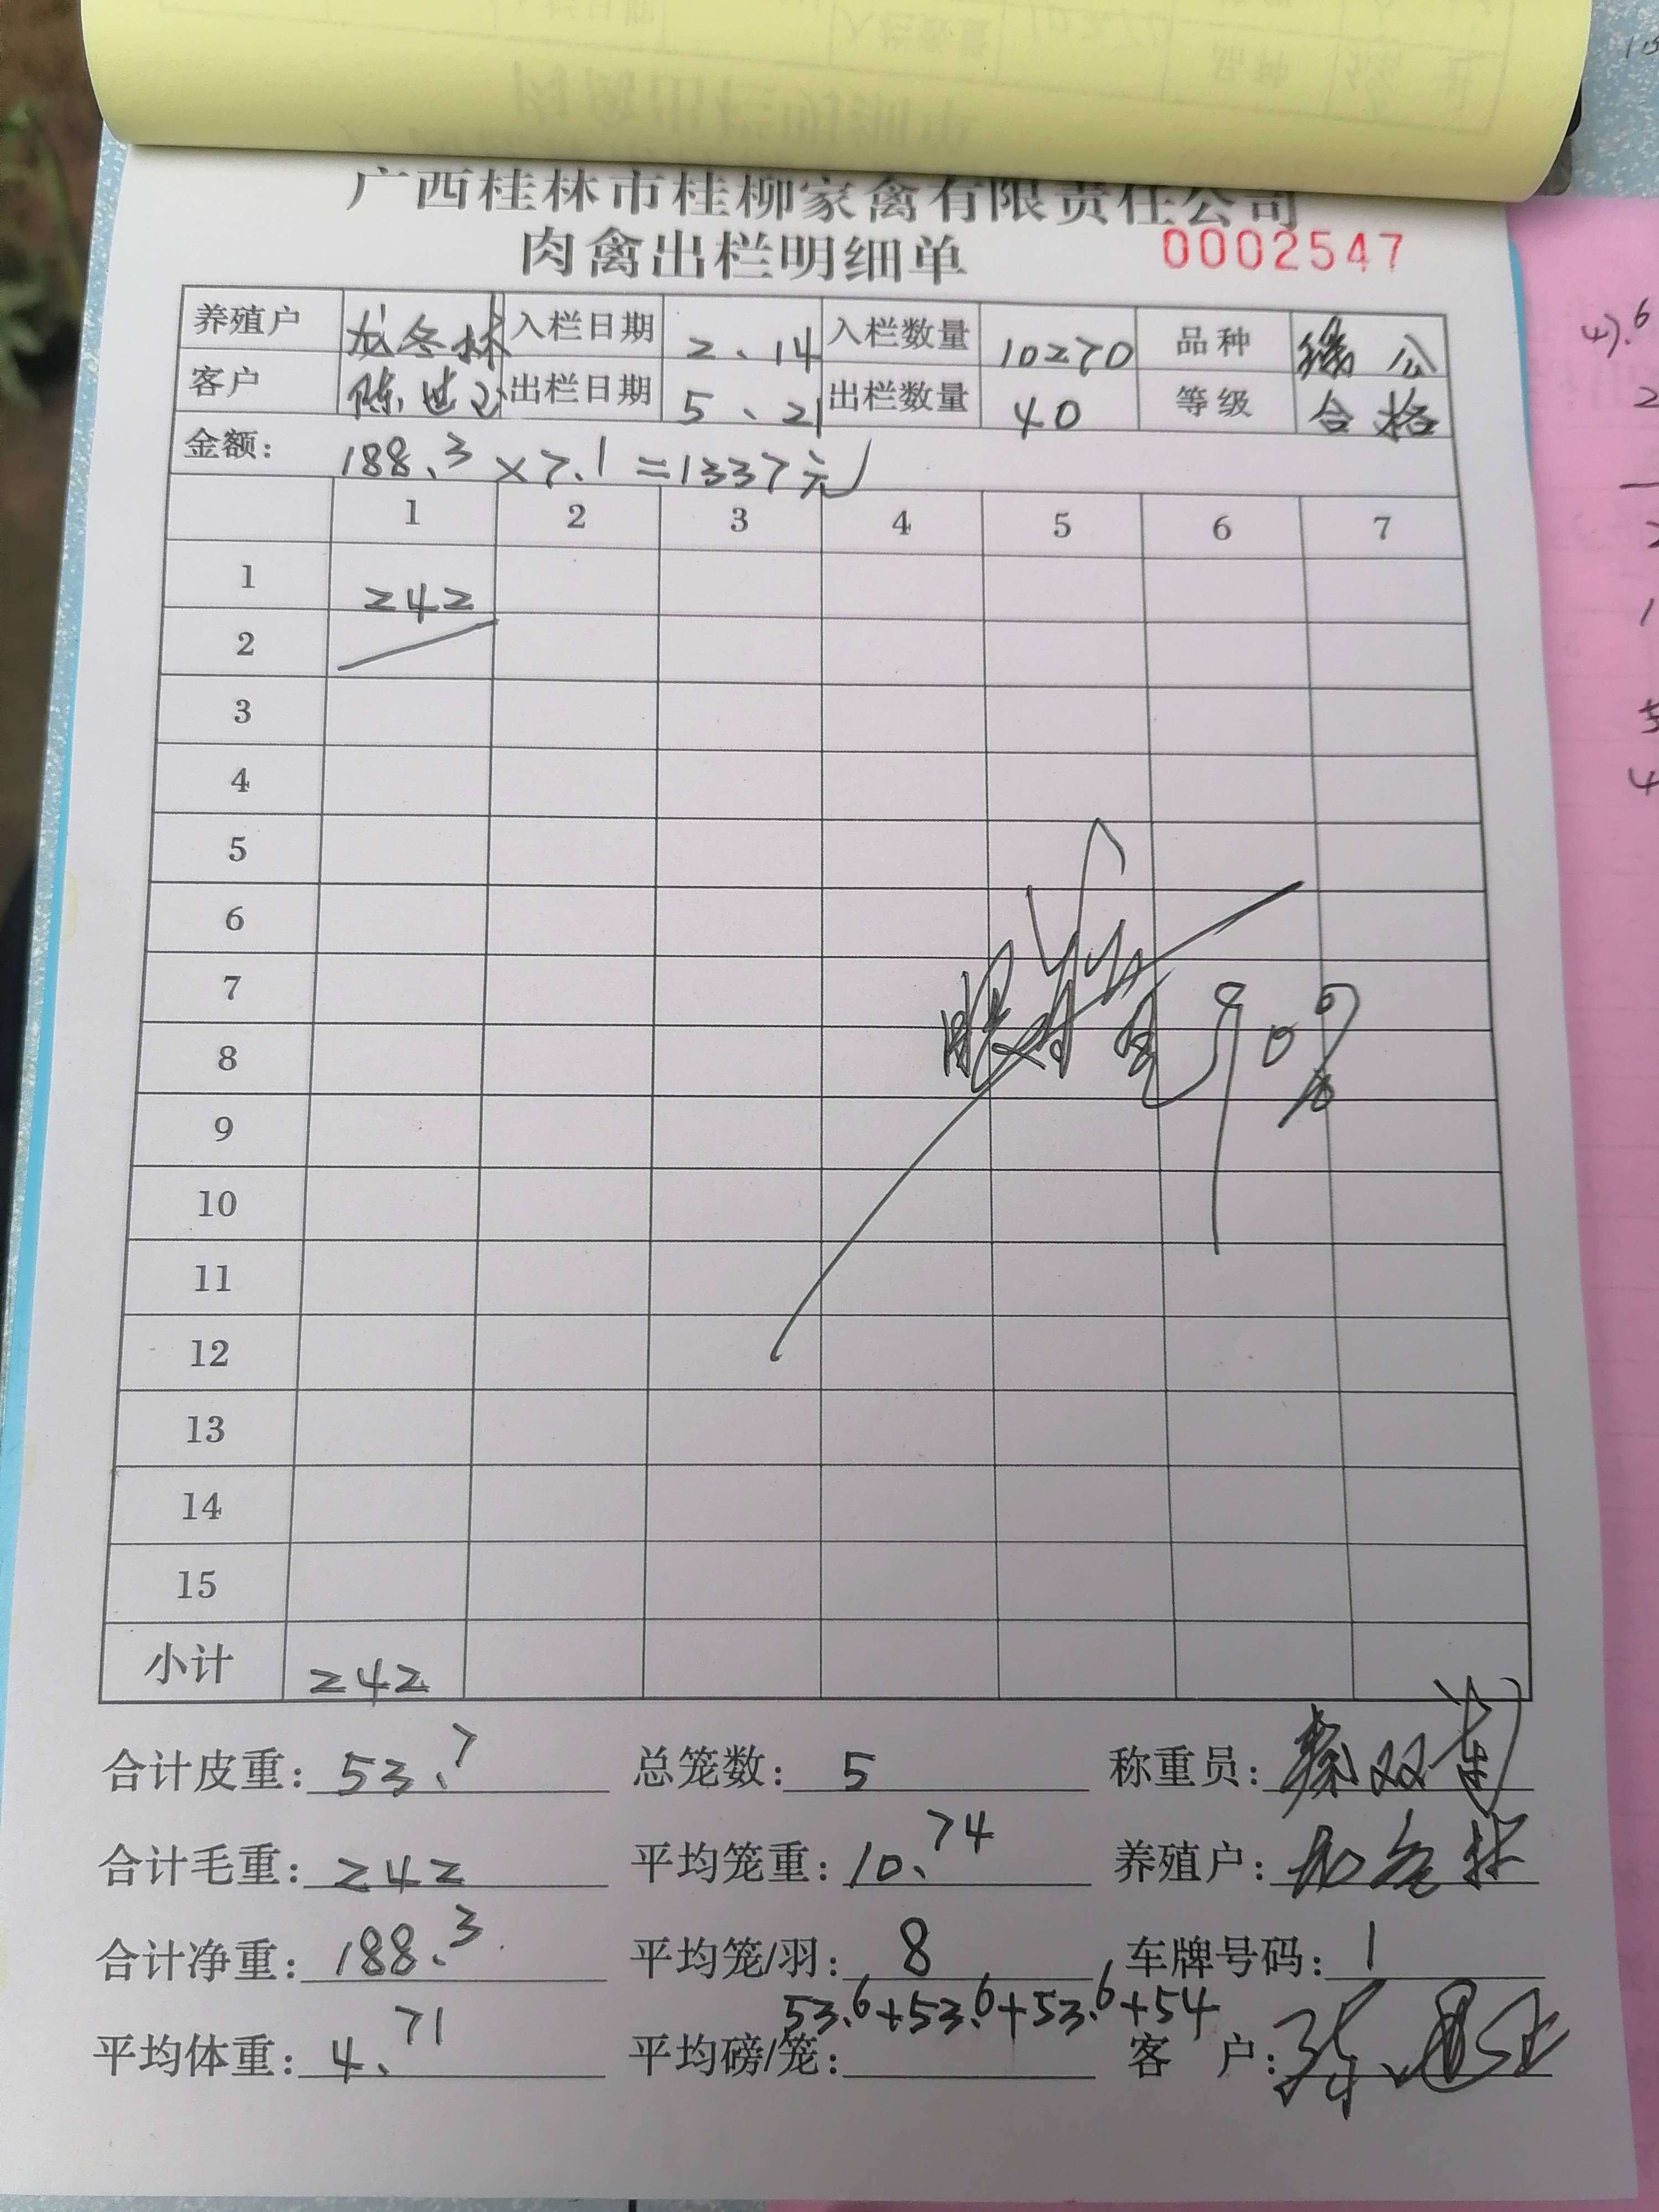 广西桂林市桂柳家禽有限责任公司
肉禽出栏明细单 0002547
养殖户 龙冬林 入栏日期 2、14 入栏数量 10270 品种 公
客户 陈世 出栏日期 5、21 出栏数量 40 等级 合格
金额: 188.3×7.1=1337元
1 2 3 4 5 6 7
1 242
2
3
4
5
6
7
8
9
10
11
12
13
14
15
小计 242
合计皮重: 53.7 总笼数: 5 称重员:
合计毛重: 242 平均笼重: 10.74 养殖户: 龙冬林
合计净重: 188.3 平均笼/羽: 8 车牌号码: 1
53.6+53.6+53.6+54
平均体重: 4.71 平均磅/笼: 客户: